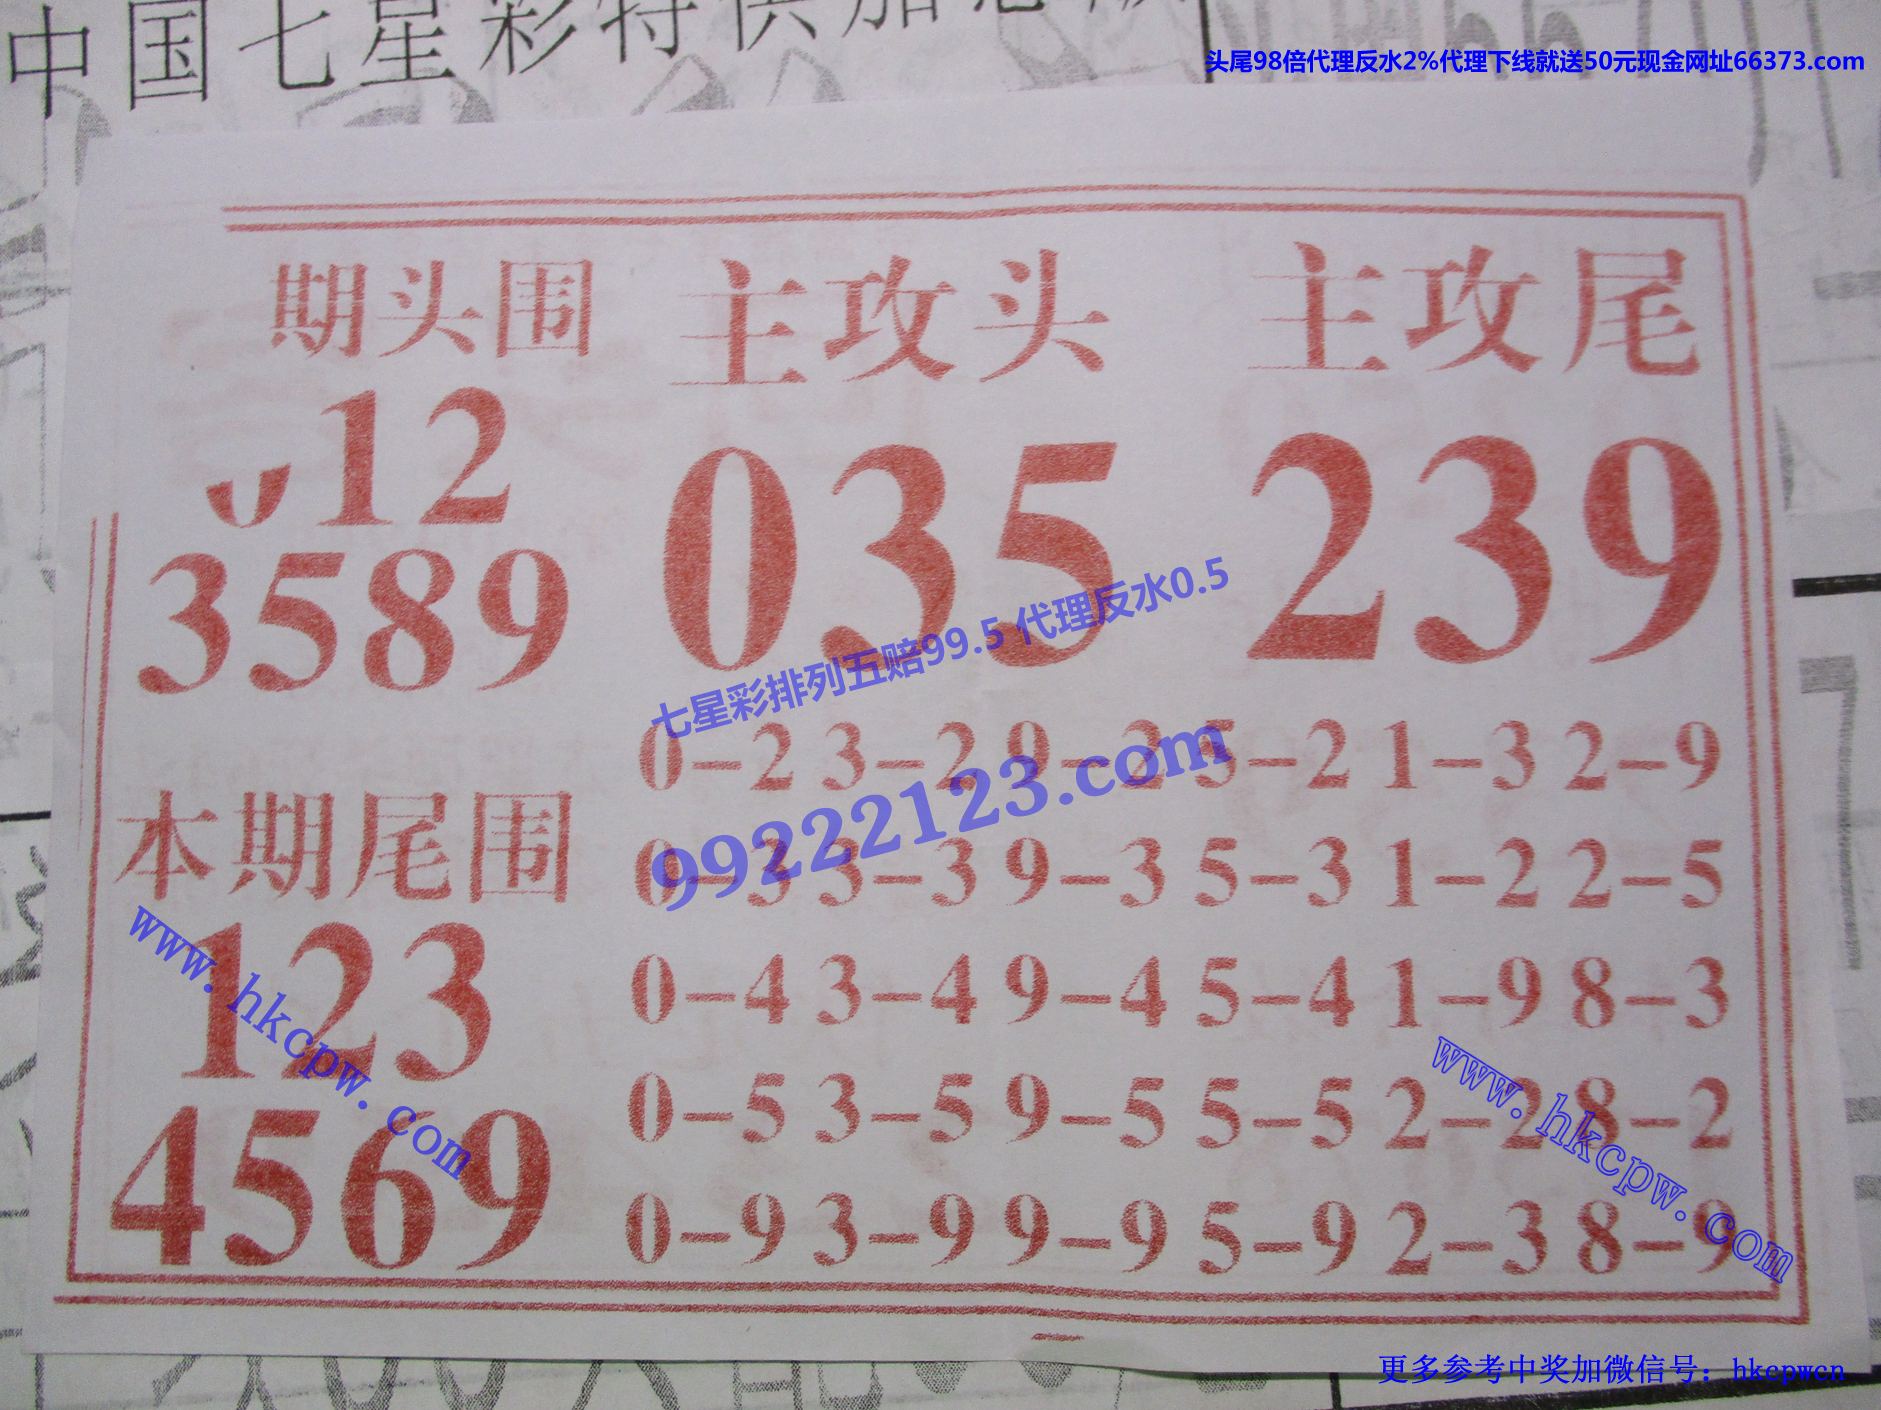 中国七星彩特供加
头尾98倍代理反水2%代理下线就送50元现金网址66373.com
期头围 主攻头 主攻尾
012
3589
035 239
七星彩排列五赔99.5 代理反水0.5
99222123.com
0-2 3-2 9-2 5-2 1-3 2-9
本期尾围
0-3 3-3 9-3 5-3 1-2 2-5
123
0-4 3-4 9-4 5-4 1-9 8-3
4569
0-5 3-5 9-5 5-5 2-2 8-2
0-9 3-9 9-9 5-9 2-3 8-9
www.hkcpw.com
www.hkcpw.com
更多参考中奖加微信号：hkcpwcn